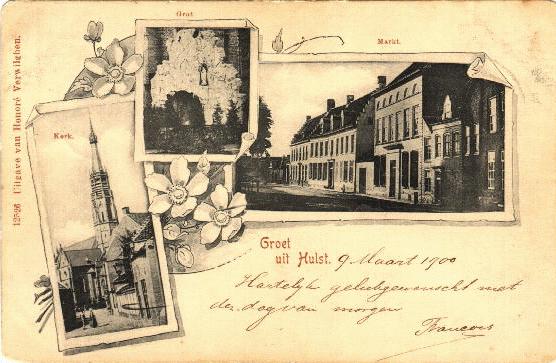 Grot
Markt.
Kerk.
12526 Uitgave van Honoré Verwilghen.
Groet
uit Hulst.
9 Maart 1900
Hartelijk gelukgewenscht met
den dag van morgen
Francois